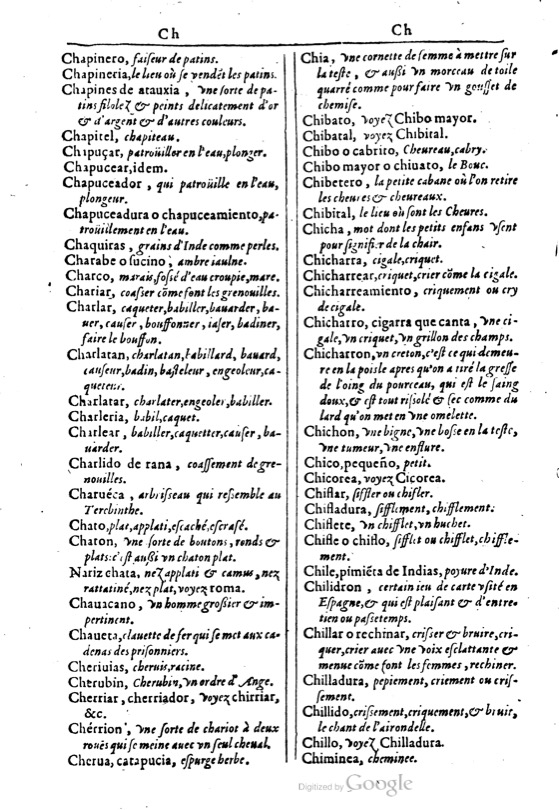 Ch
Chapinero, faiseur de patins.
Chapineria, le lieu où se vendẽt les patins.
Chapines de atauxia, vne sorte de pa-
tins filolez & peints delicatement d'or
& d'argent & d'autres couleurs.
Chapitel, chapiteau.
Chapuçar, patroüiller en l'eau, plonger.
Chapucear, idem.
Chapuceador, qui patroüille en l'eau,
plongeur.
Chapuceadura o chapuceamiento, pa-
troüillement en l'eau.
Chaquiras, grains d'Inde comme perles.
Charabe o sucino, ambre iaulne.
Charco, marais, fossé d'eau croupie, mare.
Charlar, coasser cõme font les grenouilles.
Charlar, caqueter, babiller, bauarder, ba-
uer, causer, bouffonner, iaser, badiner,
faire le bouffon.
Charlatan, charlatan, babillard, bauard,
causeur, badin, basteleur, engeoleur, ca-
queteur.
Charlatar, charlater, engeoler, babiller.
Charleria, babil, caquet.
Charlear, babiller, caquetter, causer, ba-
uarder.
Charlido de rana, coassement de gre-
nouilles.
Charuéca, arbrisseau qui ressemble au
Terebinthe.
Chato, plat, applati, escaché, escrasé.
Chaton, vne sorte de boutons, ronds &
plats: c'est aussi vn chaton plat.
Nariz chata, nez applati & camus, nez
rattatiné, nez plat, voyez roma.
Chauacano, vn homme grossier & im-
pertinent.
Chaueta, clauette de fer qui se met aux ca-
denas des prisonniers.
Cheriuias, cheruis, racine.
Cherubin, Cherubin, vn ordre d'Ange.
Cherriar, cherriador, voyez chirriar,
&c.
Chérrion, vne sorte de chariot à deux
rouës qui se meine auec vn seul cheual.
Cherua, catapucia, espurge herbe.
Ch
Chia, vne cornette de femme à mettre sur
la teste, & aussi vn morceau de toile
quarré comme pour faire vn gousset de
chemise.
Chibato, voyez Chibo mayor.
Chibatal, voyez Chibital.
Chibo o cabrito, Cheureau, cabry.
Chibo mayor o chiuato, le Bouc.
Chibetero, la petite cabane où l'on retire
les cheures & cheureaux.
Chibital, le lieu où sont les Cheures.
Chicha, mot dont les petits enfans vsent
pour signifier de la chair.
Chicharra, cigale, criquet.
Chicharrear, criquet, crier cõme la cigale.
Chicharreamiento, criquement ou cry
de cigale.
Chicharro, cigarra que canta, vne ci-
gale, vn criquet, vn grillon des champs.
Chicharron, vn creton, c'est ce qui demeu-
re en la poisle apres qu'on a tiré la gresse
de l'oing du pourceau, qui est le saing
doux, & est tout rissolé & sec comme du
lard qu'on met en vne omelette.
Chichon, vne bigne, vne bosse en la teste,
vne tumeur, vne enflure.
Chico, pequeño, petit.
Chicorea, voyez Cicorea.
Chiflar, siffler ou chifler.
Chifladura, sifflement, chifflement.
Chiflete, vn chifflet, vn huchet.
Chifle o chiflo, sifflet ou chifflet, chiffle-
ment.
Chile, pimiẽta de Indias, poyure d'Inde.
Chilidron, certain ieu de carte vsité en
Espagne, & qui est plaisant & d'entre-
tien ou passetemps.
Chillar o rechinar, crisser & bruire, cri-
quer, crier auec vne voix esclattante &
menue cõme font les femmes, rechiner.
Chilladura, pepiement, criement ou cris-
sement.
Chillido, crissement, criquement, & bruir,
le chant de l'airondelle.
Chillo, voyez Chilladura.
Chiminea, cheminee.
Digitized by Google